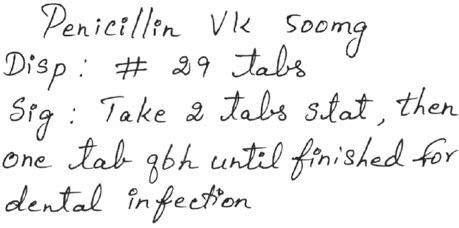 Penicillin VK 500mg
Disp: # 29 tabs
Sig: Take 2 tabs stat, then
one tab q6h until finished for
dental infection